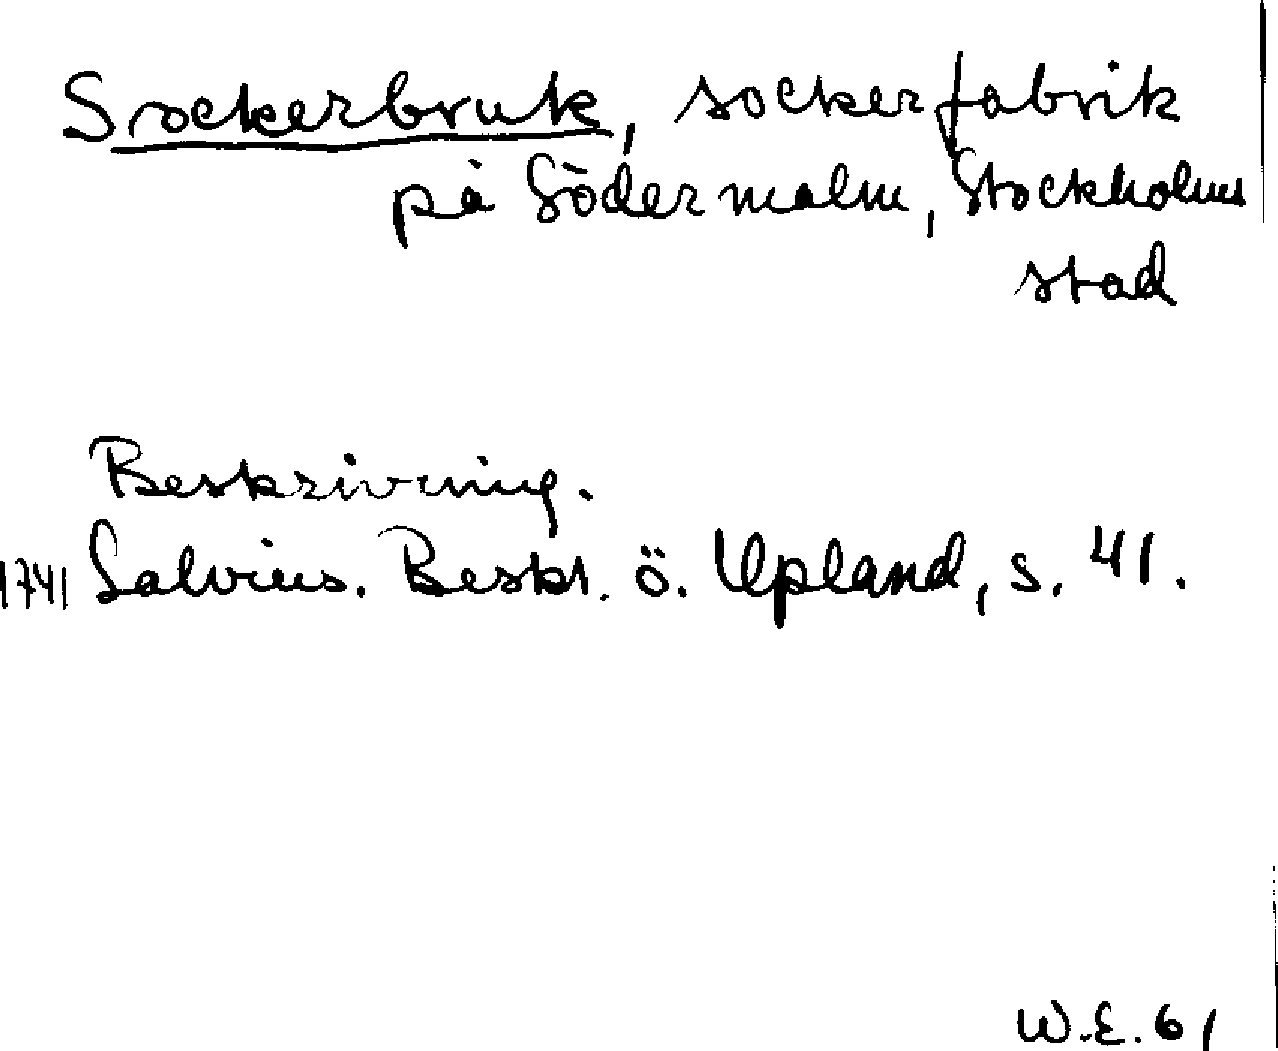 Sockerbruk, sockerfabrik
på Södermalm, Stockholms
stad
Beskrivning.
1741 Salvius. Beskr. ö. Upland, s. 41.
W.E. 61